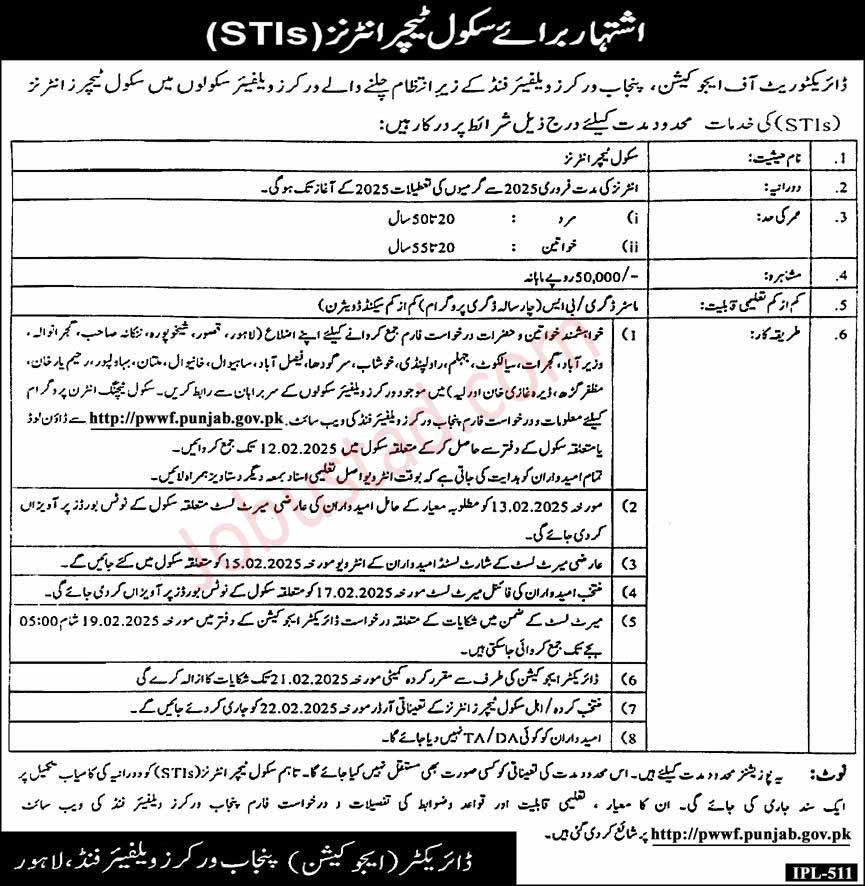 اشتہار برائے سکول ٹیچر انٹرنز (STIs)
ڈائریکٹوریٹ آف ایجوکیشن، پنجاب ورکرز ویلفیئر فنڈ کے زیر انتظام چلنے والے ورکرز ویلفیئر سکولوں میں سکول ٹیچرز انٹرنز
(STIs) کی خدمات محدود مدت کیلئے درج ذیل شرائط پر درکار ہیں:
1. نام حیثیت: سکول ٹیچر انٹرنز
2. دورانیہ: انٹرنز کی مدت فروری 2025 سے گرمیوں کی تعطیلات 2025 کے آغاز تک ہوگی۔
3. عمر کی حد: i) مرد : 20 تا 50 سال
ii) خواتین : 20 تا 55 سال
4. مشاہرہ: 50,000/- روپے ماہانہ
5. کم از کم تعلیمی قابلیت: ماسٹر ڈگری/بی ایس (چار سالہ ڈگری پروگرام) کم از کم سیکنڈ ڈویژن)
6. طریقہ کار: 1) خواہشمند خواتین و حضرات درخواست فارم جمع کروانے کیلئے اپنے اضلاع (لاہور، قصور، شیخوپورہ، ننکانہ صاحب، گجرانوالہ،
وزیر آباد، گجرات، سیالکوٹ، جہلم، راولپنڈی، خوشاب، سرگودھا، فیصل آباد، ساہیوال، خانیوال، ملتان، بہاولپور، رحیم یار خان،
مظفر گڑھ، ڈیرہ غازی خان اور لیہ) میں موجود ورکرز ویلفیئر سکولوں کے سربراہان سے رابطہ کریں۔ سکول ٹیچنگ انٹرن پروگرام
کیلئے معلومات و درخواست فارم پنجاب ورکرز ویلفیئر فنڈ کی ویب سائٹ http://pwwf.punjab.gov.pk. سے ڈاؤن لوڈ
یا متعلقہ سکول کے دفتر سے حاصل کر کے متعلقہ سکول میں 12.02.2025 تک جمع کروائیں۔
تمام امیدواران کو ہدایت کی جاتی ہے کہ بوقت انٹرویو اصل تعلیمی اسناد بمعہ دیگر دستاویز ہمراہ لائیں۔
2) مورخہ 13.02.2025 کو مطلوبہ معیار کے حامل امیدواران کی عارضی میرٹ لسٹ متعلقہ سکول کے نوٹس بورڈز پر آویزاں
کر دی جائے گی۔
3) عارضی میرٹ لسٹ کے شارٹ لسٹڈ امیدواران کے انٹرویو مورخہ 15.02.2025 کو متعلقہ سکول میں کئے جائیں گے۔
4) منتخب امیدواران کی فائنل میرٹ لسٹ مورخہ 17.02.2025 کو متعلقہ سکول کے نوٹس بورڈز پر آویزاں کر دی جائے گی۔
5) میرٹ لسٹ کے ضمن میں شکایات کے متعلقہ درخواست ڈائریکٹر ایجوکیشن کے دفتر میں مورخہ 19.02.2025 شام 05:00
بجے تک جمع کروائی جا سکتی ہیں۔
6) ڈائریکٹر ایجوکیشن کی طرف سے مقرر کردہ کمیٹی مورخہ 21.02.2025 تک شکایات کا ازالہ کرے گی
7) منتخب کردہ/اہل سکول ٹیچرز انٹرنز کے تعیناتی آرڈر مورخہ 22.02.2025 کو جاری کر دئے جائیں گے۔
8) امیدواران کو کوئی TA/DA نہیں دیا جائے گا۔
نوٹ: یہ پوزیشنز محدود مدت کیلئے ہیں۔ اس محدود مدت کی تعیناتی کو کسی صورت بھی مستقل نہیں کیا جائے گا۔ تاہم سکول ٹیچر انٹرنز (STIs) کو دورانیہ کی کامیاب تکمیل پر
ایک سند جاری کی جائے گی۔ ان کا معیار، تعلیمی قابلیت اور قواعد و ضوابط کی تفصیلات و درخواست فارم پنجاب ورکرز ویلفیئر فنڈ کی ویب سائٹ
http://pwwf.punjab.gov.pk پر شائع کر دی گئی ہیں۔
ڈائریکٹر (ایجوکیشن) پنجاب ورکرز ویلفیئر فنڈ، لاہور
IPL-511
Jobustad.com